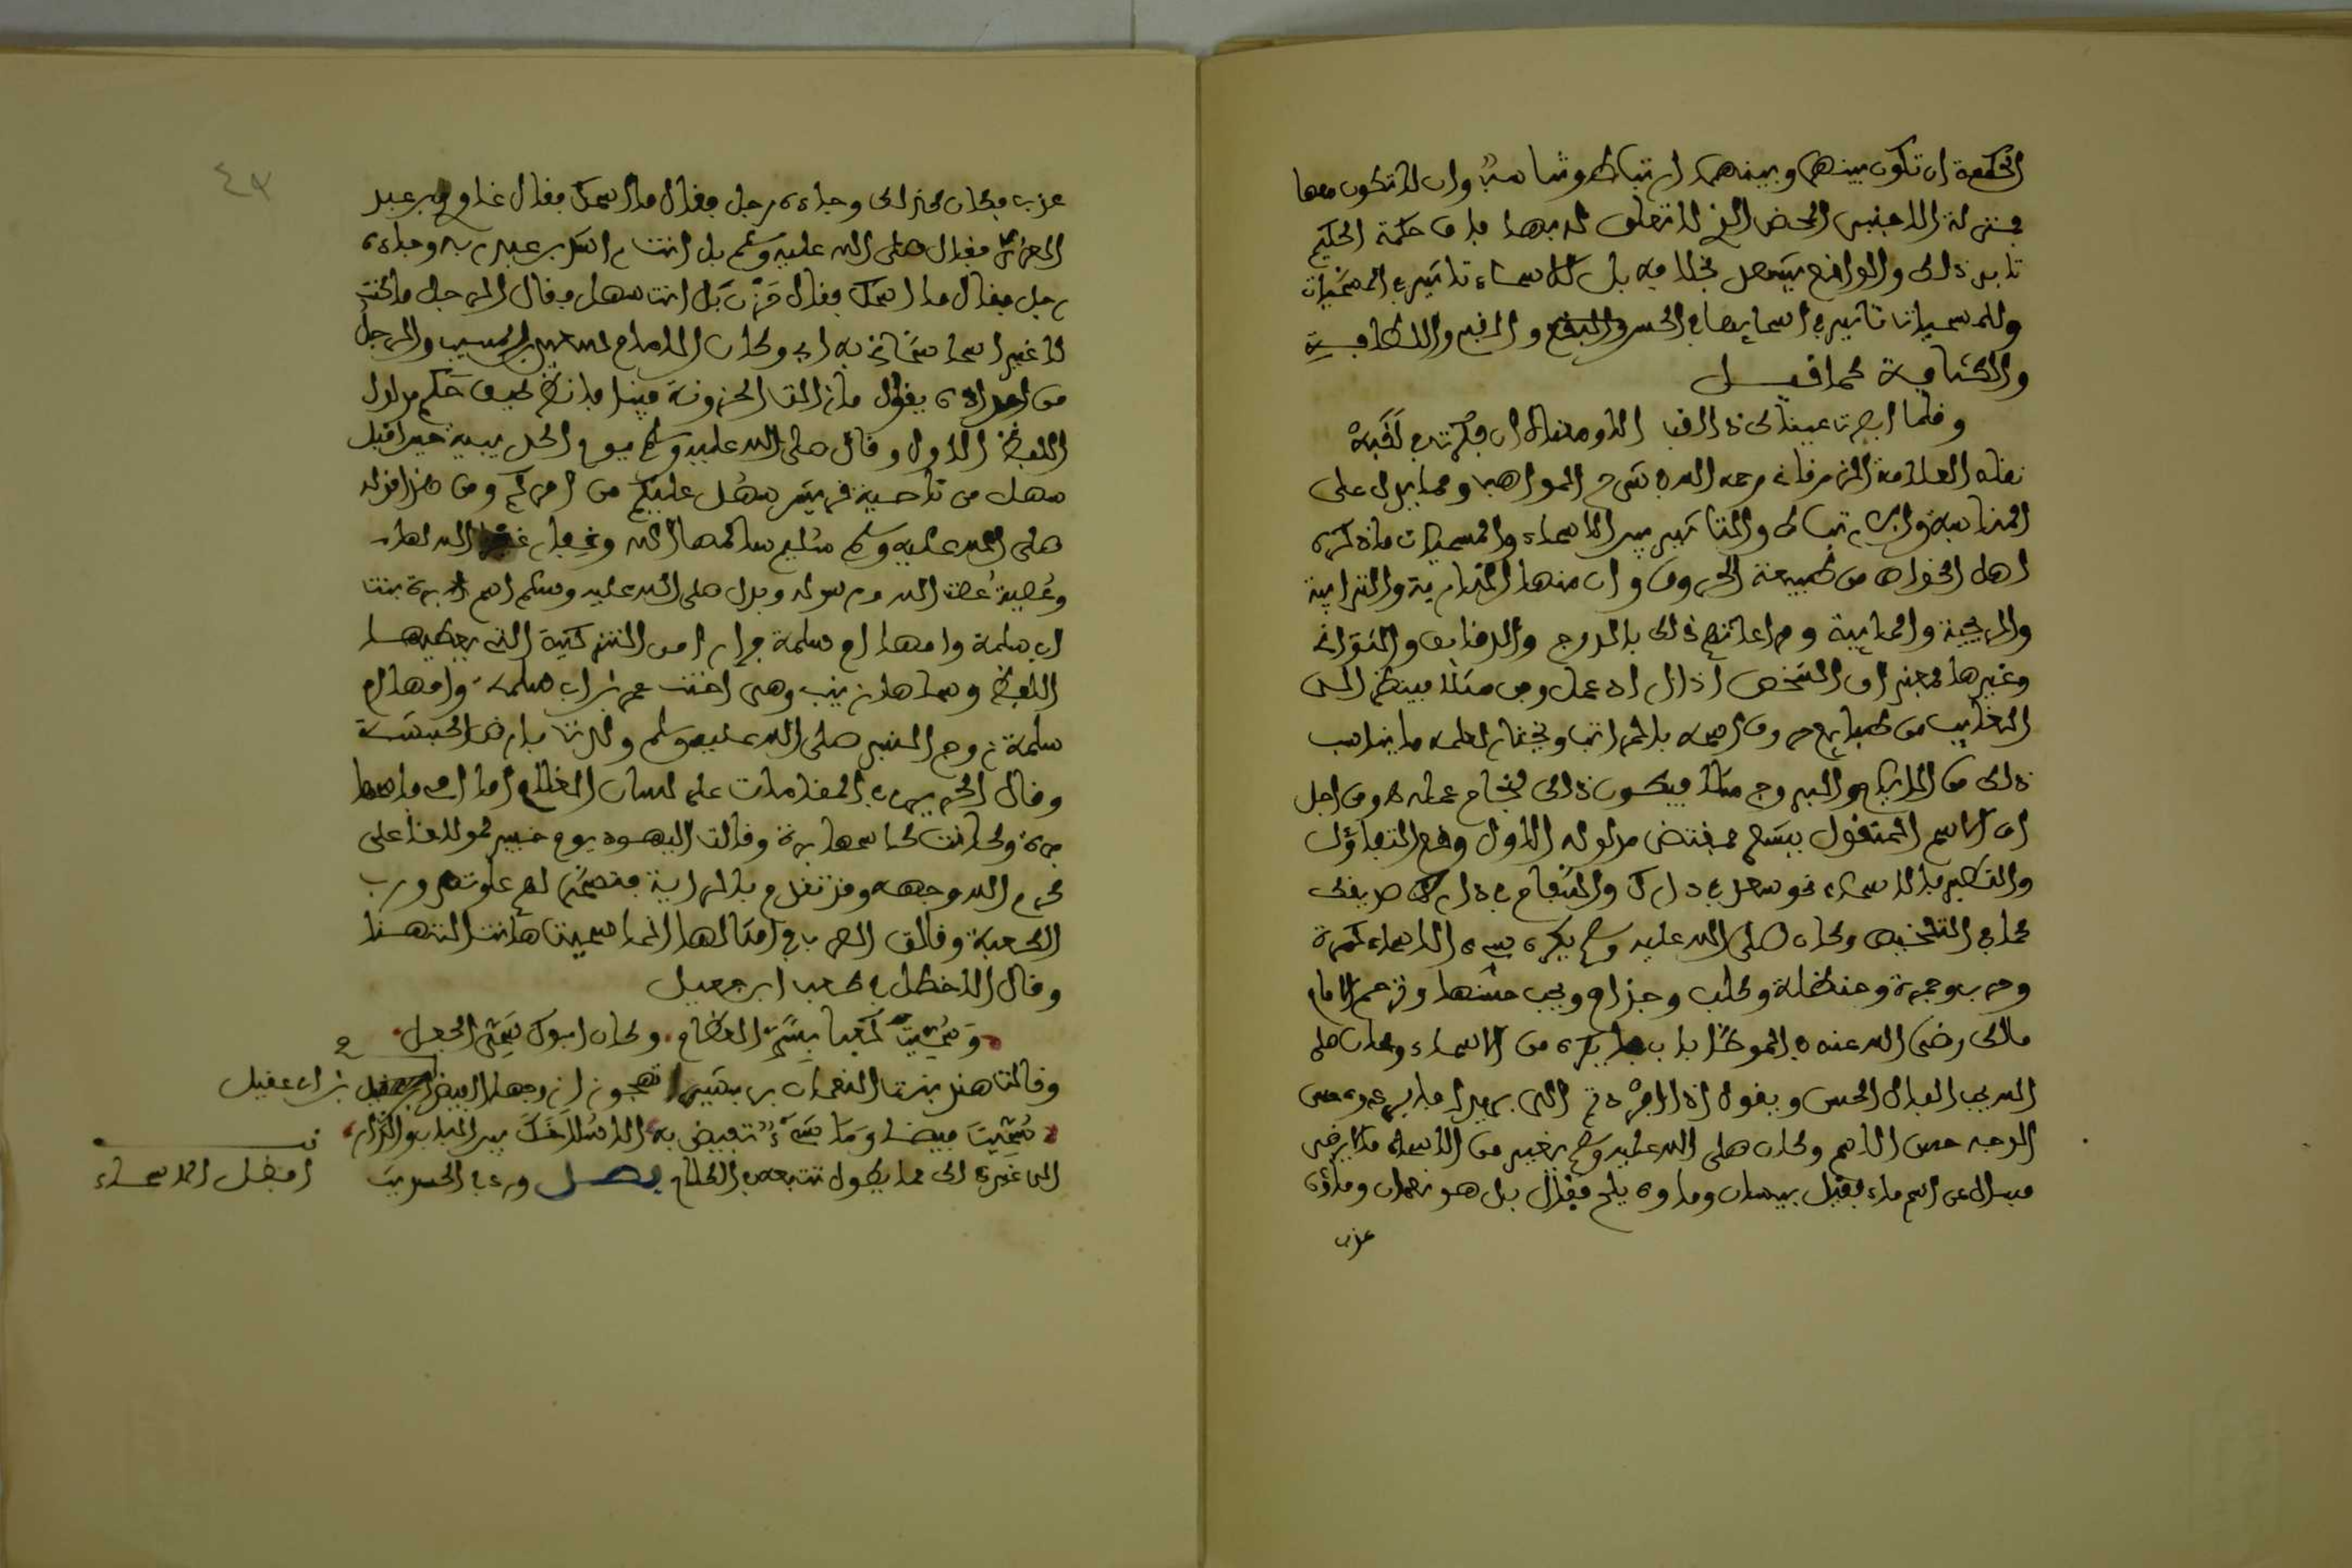 الحكمة ان تكون بينها وبينها ارتباط وتناسب وان لا تكون معها
بمنزلة الاجنبي المحض الذي لا تعلق له بها فان حكمة الحكيم
تابى ذلك والواقع يشهد بخلافه بل للاسماء تاثير في المسميات
وللمسميات تاثير في اسمائها في الحسن والقبح والخفة واللطافة
والكثافة كما قيل
وقلما ابصرت عيناك ذا لقب الا ومعناه ان فكرت في لقبه
نقله العلامة الزرقاني رحمه الله في شرح المواهب ومما يدل على
المناسبة والارتباط والتاثير بين الاسماء والمسميات ما ذكره
اهل الخواص من طبيعة الحروف وان منها النارية والترابية
والريحية والمائية ومراعاتهم ذلك بالدرج والدقايق والثواني
وغيرها فتجد ان الشخص اذا اراد عمل وفق مثلا فينظر الى
الغالب من طبايع حروف اسمه بالمراتب ويختار لعلمه ما يناسب
ذلك من الايام والبروج مثلا فيكون ذلك نجاح عمله ومن اجل
ان الاسم المنقول يشعر بمقتضى مدلوله الاول وقع التفاؤل
والتطير بالاسماء نحو سعد في دارك والسفاح في دار صديقك
كما في التلخيص وكان صلى الله عليه وسلم يكره سيء الاسماء كمرة
وحرب وجمرة وحنظلة وكلب وجذام ويحب حسنها وترجم الامام
مالك رضي الله عنه في الموطا باب ما يكره من الاسماء وكان صلى
الله يحب الفال الحسن ويقول اذا ابردتم الي بريدا فابردوه حسن
الوجه حسن الاسم وكان صلى الله عليه وسلم يغير من الاسماء ما لا يرضى
فسال عن اسم ماء فقيل بيسان وماؤه ملح فقال بل هو نعمان وماؤه
عذب
عذب فكان كذلك وجاءه رجل فقال ما اسمك فقال غاو بن عبد
العزى فقال صلى الله عليه وسلم بل انت راشد بن عبد ربه وجاءه
رجل فقال ما اسمك فقال حزن قال بل انت سهل فقال الرجل ما كنت
لا غير اسما سماني به ابي وكان الامام سعيد بن المسيب والرجل
من اجداده يقول ما زالت الحزونة فينا فانظر كيف حكم مدلول
اللفظ الاول وقال صلى الله عليه وسلم يوم الحديبية حين اقبل
سهل من ناحية قريش سهل عليكم من امركم ومن هذا قوله
صلى الله عليه وسلم اسلم سالمها الله وغفار غفر الله لها
وعصية عصت الله ورسوله وبدل صلى الله عليه وسلم اسم برة بنت
ابي سلمة وامها ام سلمة فرارا من التزكية التي يعطيها
اللفظ وسماها زينب وهي اخت عمر بن ابي سلمة وامها ام
سلمة زوج النبي صلى الله عليه وسلم ولدت بارض الحبشة
وقال الحريري في المقامات على لسان الغلام اما امي فاسمها
برة وكانت كاسمها برة وقالت اليهود يوم خيبر لمولانا علي
كرم الله وجهه وقد تقدم بالراية فتسمى لهم علوتم ورب
الكعبة وقالت العرب في امثالها انما سميت هانئا لتهنا
وقال الاخطل في كعب ابن جعيل
وسميت كعبا بشر العظام وكان ابوك يسمى الجعل
وقالت هند بنت النعمان بن بشير تهجو زوجها الفيض بن ابي عقيل
سميت فيضا وما شيء تفيض به الا سلاحك بين الباب والدار
الى غير ذلك مما يطول تتبعه في الكلام فصل وفي الحديث
افضل الاسماء